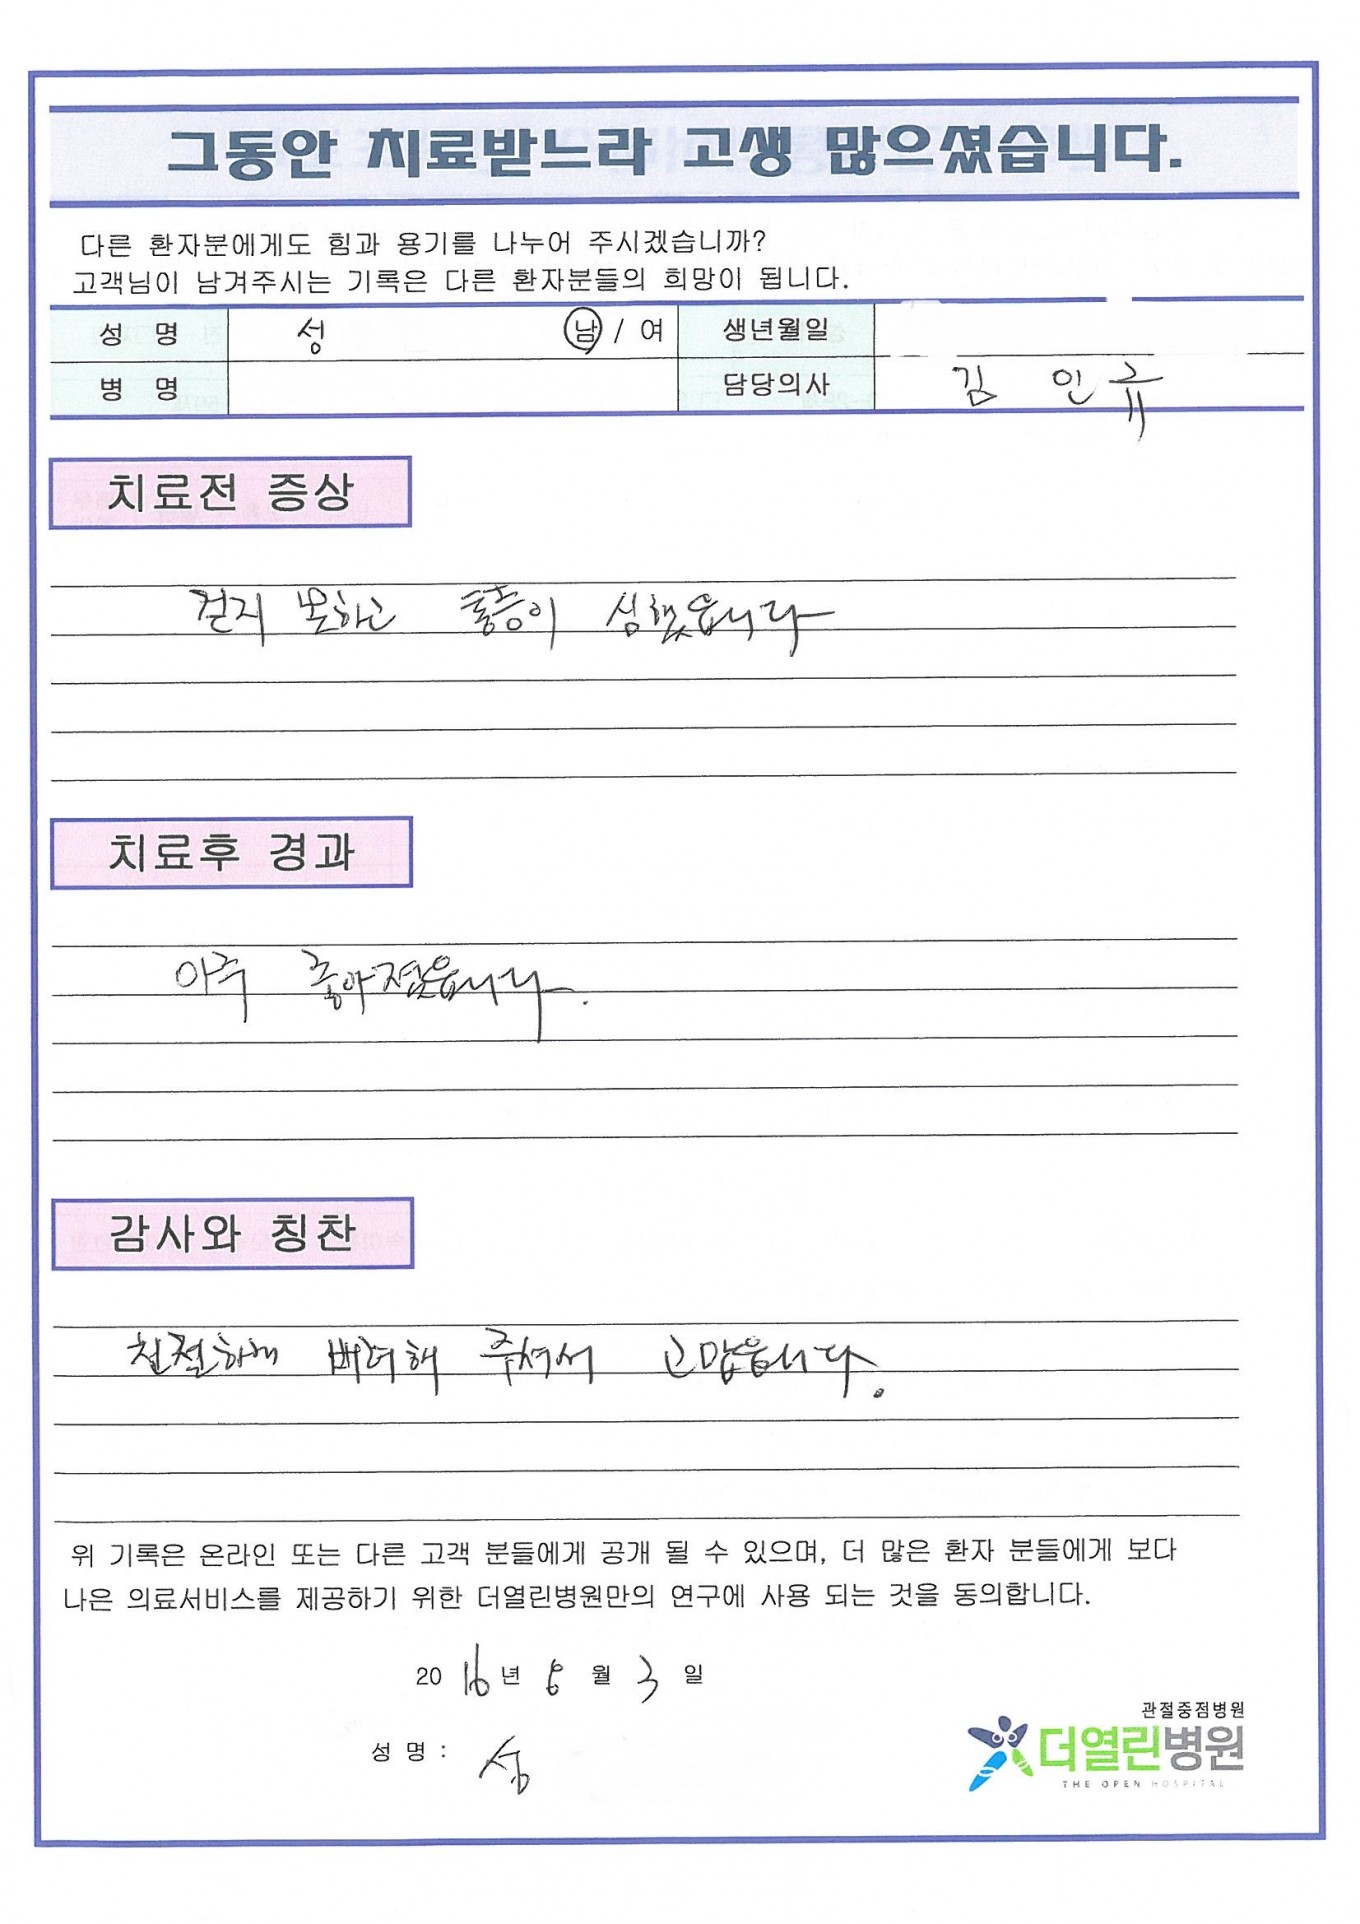 그동안 치료받느라 고생 많으셨습니다.
다른 환자분에게도 힘과 용기를 나누어 주시겠습니까?
고객님이 남겨주시는 기록은 다른 환자분들의 희망이 됩니다.
성 명 성 남 / 여 생년월일
병 명 담당의사 김 인 규
치료전 증상
걷지 못하고 통증이 심했읍니다
치료후 경과
아주 좋아졌읍니다.
감사와 칭찬
친절하게 배려해 주셔서 고맙읍니다.
위 기록은 온라인 또는 다른 고객 분들에게 공개 될 수 있으며, 더 많은 환자 분들에게 보다
나은 의료서비스를 제공하기 위한 더열린병원만의 연구에 사용 되는 것을 동의합니다.
2016년 8월 3일
성 명 : 성
관절중점병원
더열린병원
THE OPEN HOSPITAL